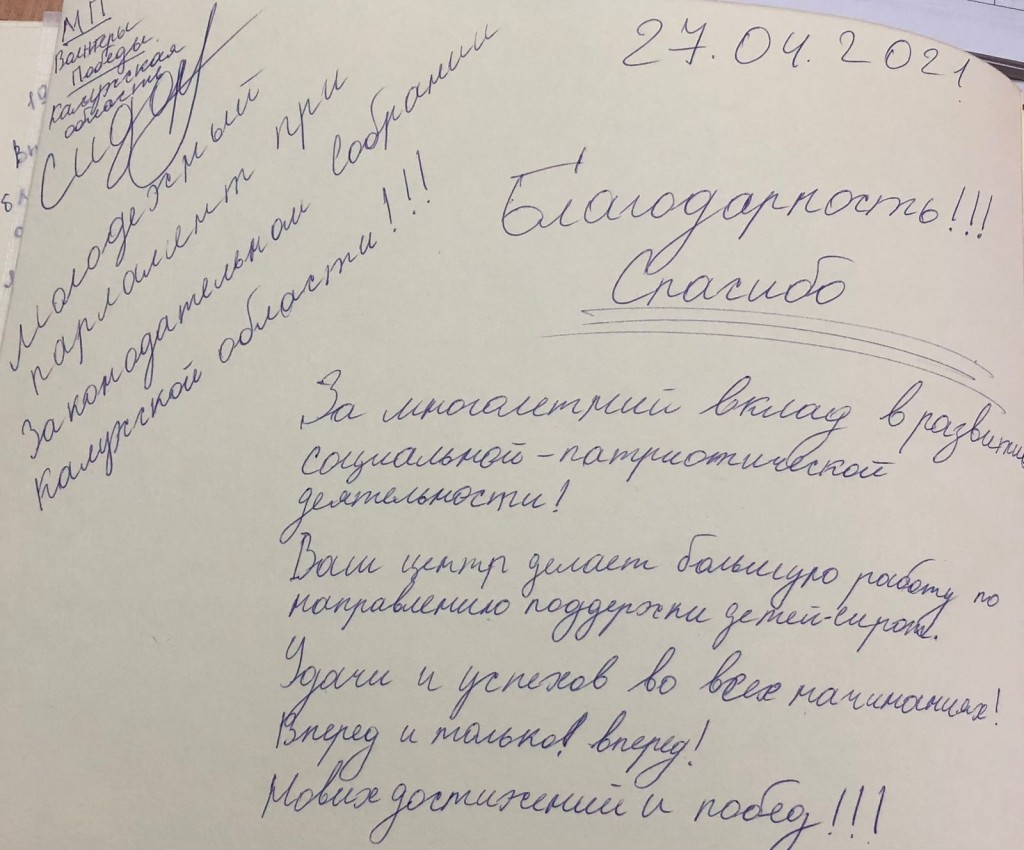 27.04.2021
Благодарность!!!
Спасибо
За многолетний вклад в развитие
социальной-патриотической
деятельности!
Ваш центр делает большую работу по
направлению поддержки детей-сирот.
Удачи и успехов во всех начинаниях!
Вперед и только! вперед!
Новых достижений и побед!!!
МП
Волонтеры
Победы
Калужская
область
Молодежный
парламент при
Законодательном Собрании
Калужской области!!!